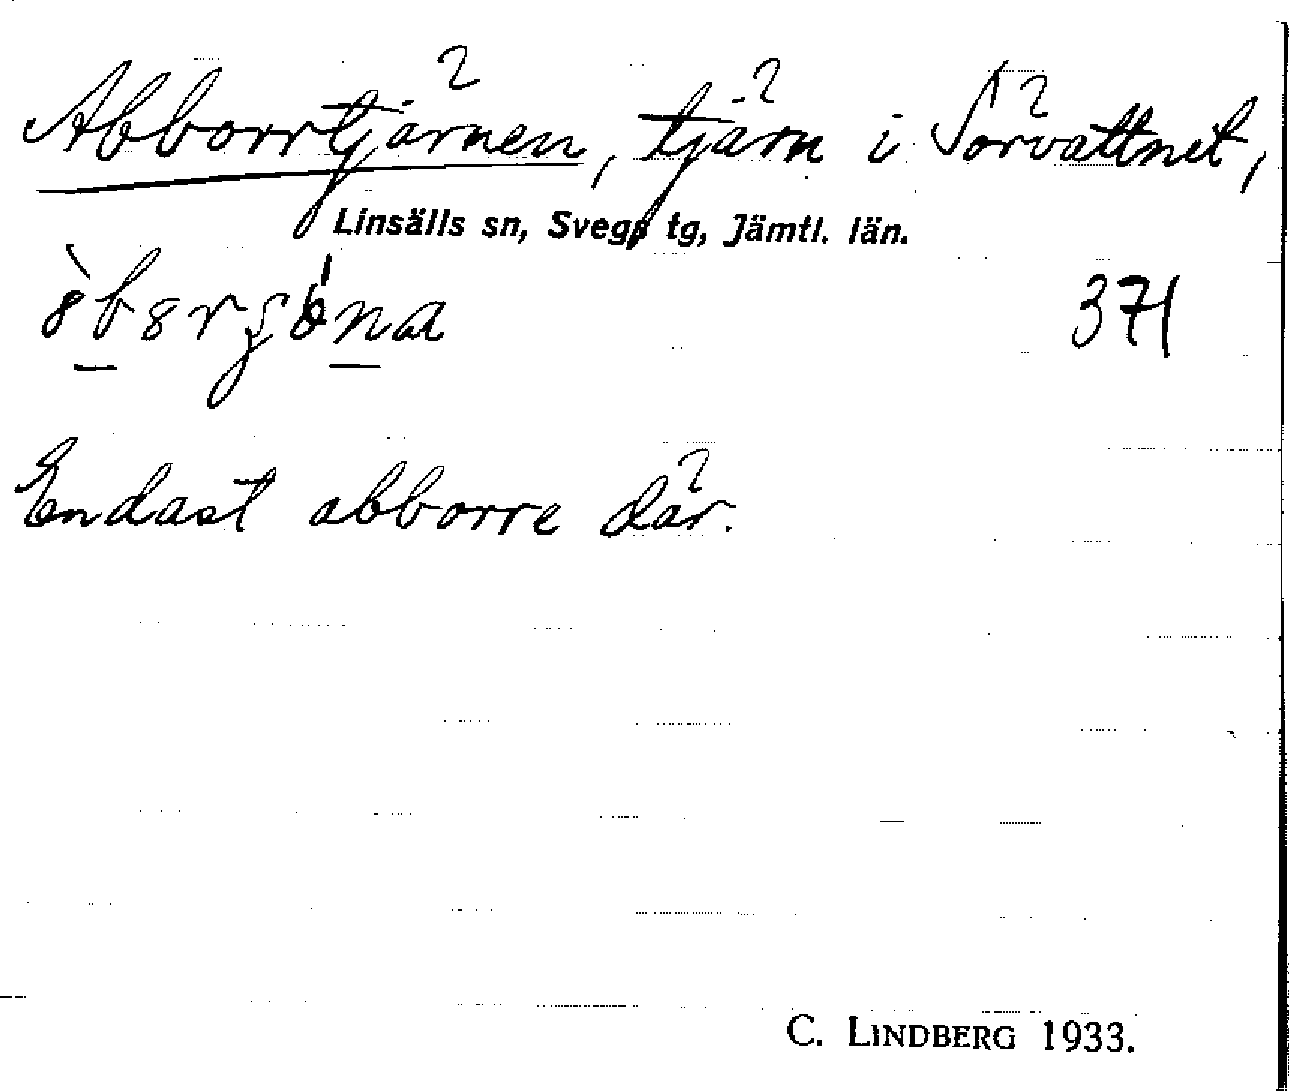 Abborrtjärnen, tjärn i Sörvattnet,
Linsälls sn, Svegs tg, Jämtl. län.
371
Endast abborre där.
C. LINDBERG 1933.